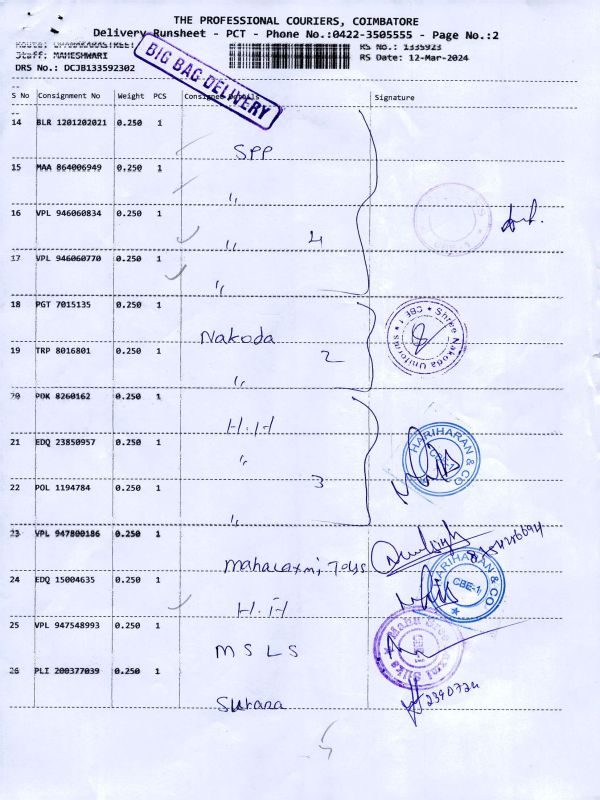 THE PROFESSIONAL COURIERS, COIMBATORE
Delivery Runsheet - PCT - Phone No.:0422-3505555 - Page No.:2
Staff: MAHESHWARI
RS No.: 1335923
DRS No.: DCJB133592302
RS Date: 12-Mar-2024
BIG BAG DELIVERY
S No Consignment No Weight PCS Consignee Details Signature
14 BLR 1201202021 0.250 1
SPP
15 MAA 864006949 0.250 1
"
16 VPL 946060834 0.250 1
" 4
17 VPL 946060770 0.250 1
"
18 PGT 7015135 0.250 1
Nakoda
Shree Nakoda Uniforms * CBE-1 *
19 TRP 8016801 0.250 1
2
"
20 PDK 8260162 0.250 1
H.H
HARIHARAN & CO
21 EDQ 23850957 0.250 1
"
22 POL 1194784 0.250 1
3
"
23 VPL 947800186 0.250 1
Mahalaxmi
24 EDQ 15004635 0.250 1
H.H
HARIHARAN & CO
CBE-1
25 VPL 947548993 0.250 1
M S L S
26 PLI 200377039 0.250 1
Surana